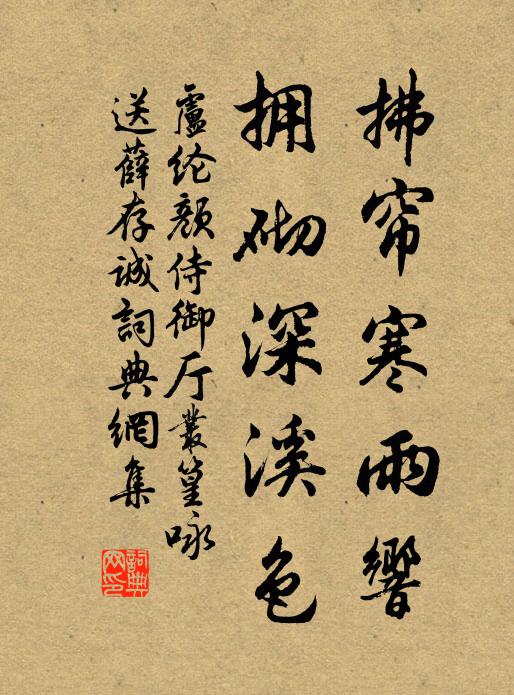 拂帘寒雨響
拥砌深溪色
盧纶颜侍御厅叢篁咏
送薛存诚詞典網集
詞典網印